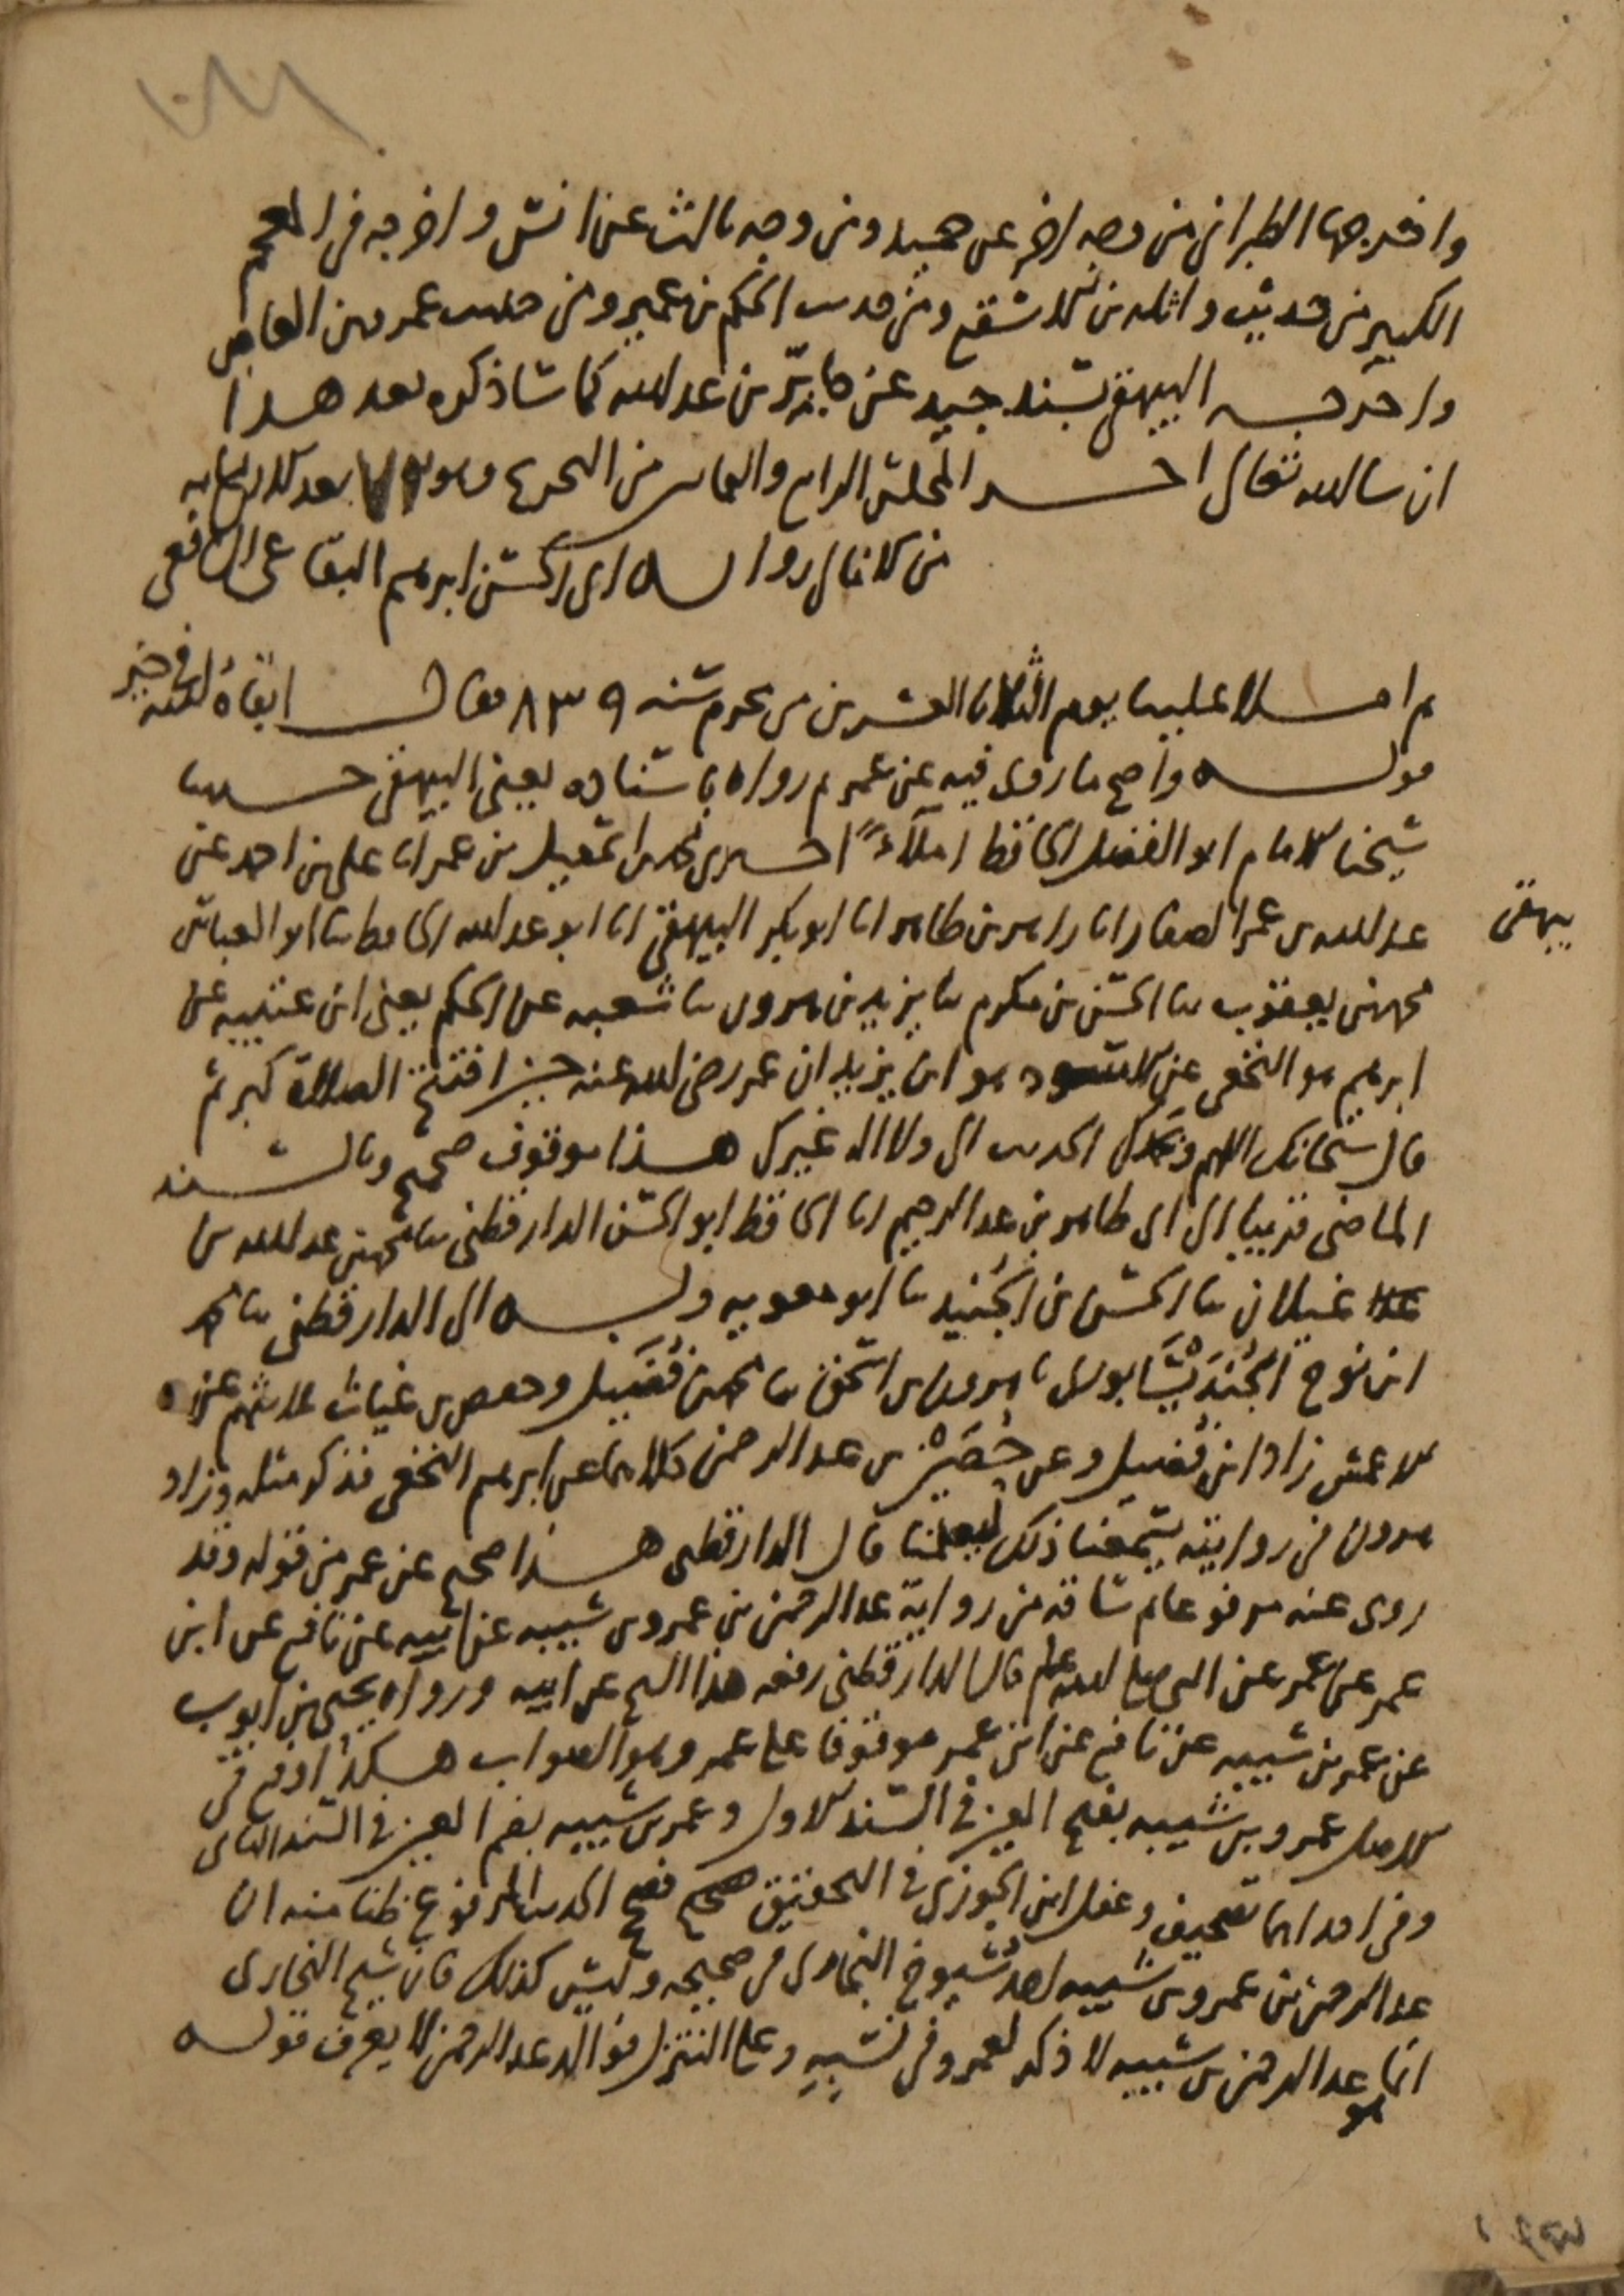 واخرجها الطبراني من وجه اخر عن حميد ومن وجه ثالث عن انس واخرجه في المعجم
الكبير من حديث واثلة بن الاسقع ومن حديث الحكم بن عمير ومن حديث عمرو بن العاص
واخرجه البيهقي بسند جيد عن جابر بن عبد الله كما ساذكره بعد هذا
ان شا الله تعالى اخر المجلس الرابع والثمانين من التخريج وهو بعد الاربعمايه
من الامالي رواية ابي الحسن ابرهيم البقاعي الشافعي
ثم املا علينا يوم الثلاثا العشرين من محرم سنه ٨٣٩ فقال ابقاه الله في خير
قوله واصح ما روي فيه عن عمر ثم رواه باسناده يعني البيهقي حدثنا
شيخنا الامام ابو الفضل الحافظ املاءً اخبرني محمد بن اسمعيل بن عمر انا علي بن احمد عن
عبد الله بن عمر الصفار انا زاهر بن طاهر انا ابو بكر البيهقي انا ابو عبد الله الحافظ ثنا ابو العباس
بيهقي
محمد بن يعقوب ثنا الحسن بن مكرم ثنا يزيد بن هرون ثنا شعبه عن الحكم يعني ابن عتيبه عن
ابرهيم هو النخعي عن الاسود هو ابن يزيد ان عمر رضي الله عنه حين افتتح الصلاة كبر ثم
قال سبحانك اللهم وبحمدك الحديث الى ولا اله غيرك هذا موقوف صحيح وبالسند
الماضي قريبا الى ابي طاهر بن عبد الرحيم انا الحافظ ابو الحسن الدارقطني ثنا محمد بن عبد الله بن
غيلان ثنا الحسين بن الجنيد ثنا ابو معويه وبه الى الدارقطني ثنا محمد
ابن نوح الجُنْدَيْسَابوري ثنا هرون بن اسحق ثنا محمد بن فُضَيل وحفص بن غياث ثلاثتهم عن
الاعمش زاد ابن فُضيل وعن حُصَيْن بن عبد الرحمن كلاهما عن ابرهيم النخعي فذكر مثله وزاد
هرون في روايته يسمعنا ذلك ليعلمنا قال الدارقطني هذا صحيح عن عمر من قوله وقد
روى عنه مرفوعا ثم ساقه من رواية عبد الرحمن بن عمرو بن شيبه عن ابيه عن نافع عن ابن
عمر عن عمر عن النبي صلى الله عليه وسلم قال الدارقطني رفعه هذا الشيخ عن ابيه ورواه يحيى بن ايوب
عن عمر بن شيبه عن نافع عن ابن عمر موقوفا على عمر وهو الصواب هكذا وقع في
الاصل عمرو بن شيبه بفتح العين في السند الاول وعمر بن شيبه بضم العين في السند الثاني
وفي احداهما تصحيف وغفل ابن الجوزي في التحقيق فصحح الحديث المرفوع ظنا منه ان
عبد الرحمن بن عمرو بن شيبه احد شيوخ البخاري في صحيحه وليس كذلك فان شيخ البخاري
انما هو عبد الرحمن بن شيبه لا ذكر لعمرو في نسبهِ وعلى التنزل فوالد عبد الرحمن لا يعرف قوله